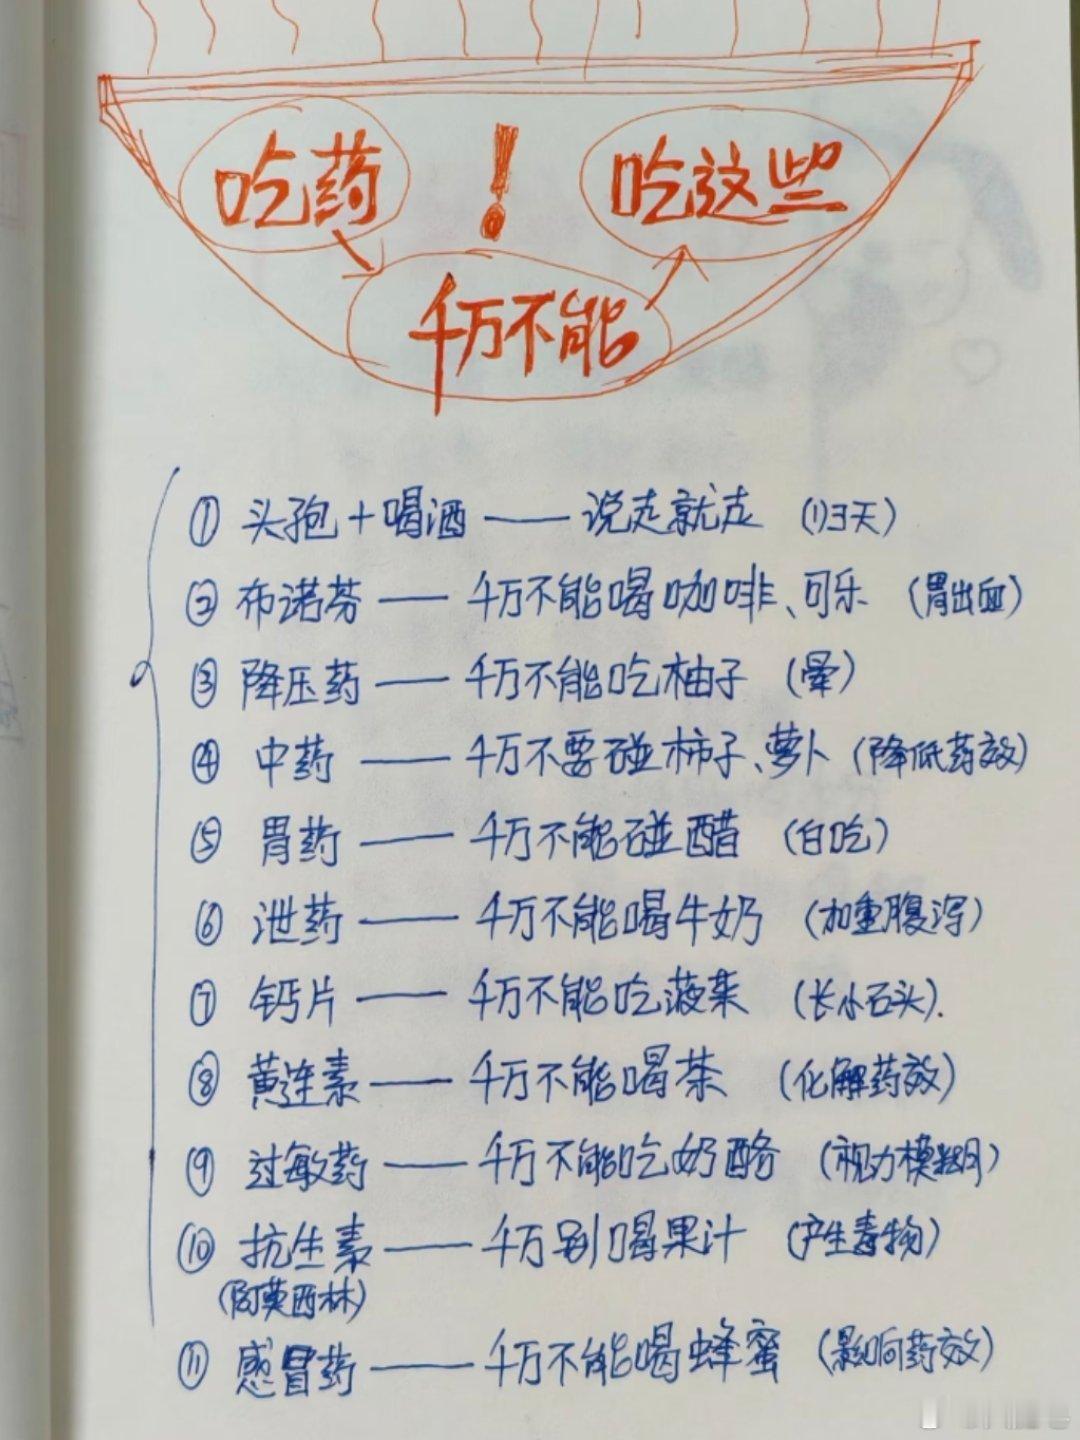 吃药 ! 吃这些
千万不能
① 头孢+喝酒——说走就走
② 布诺芬——千万不能喝咖啡、可乐(胃出血)
③ 降压药——千万不能吃柚子(晕)
④ 中药——千万不要碰柿子、萝卜(降低药效)
⑤ 胃药——千万不能碰醋(白吃)
⑥ 泄药——千万不能喝牛奶(加重腹泻)
⑦ 钙片——千万不能吃菠菜(长小石头).
⑧ 黄连素——千万不能喝茶(化解药效)
⑨ 过敏药——千万不能吃奶酪(视力模糊)
⑩ 抗生素——千万别喝果汁(产生毒物)
(阿莫西林)
⑪ 感冒药——千万不能喝蜂蜜(影响药效)